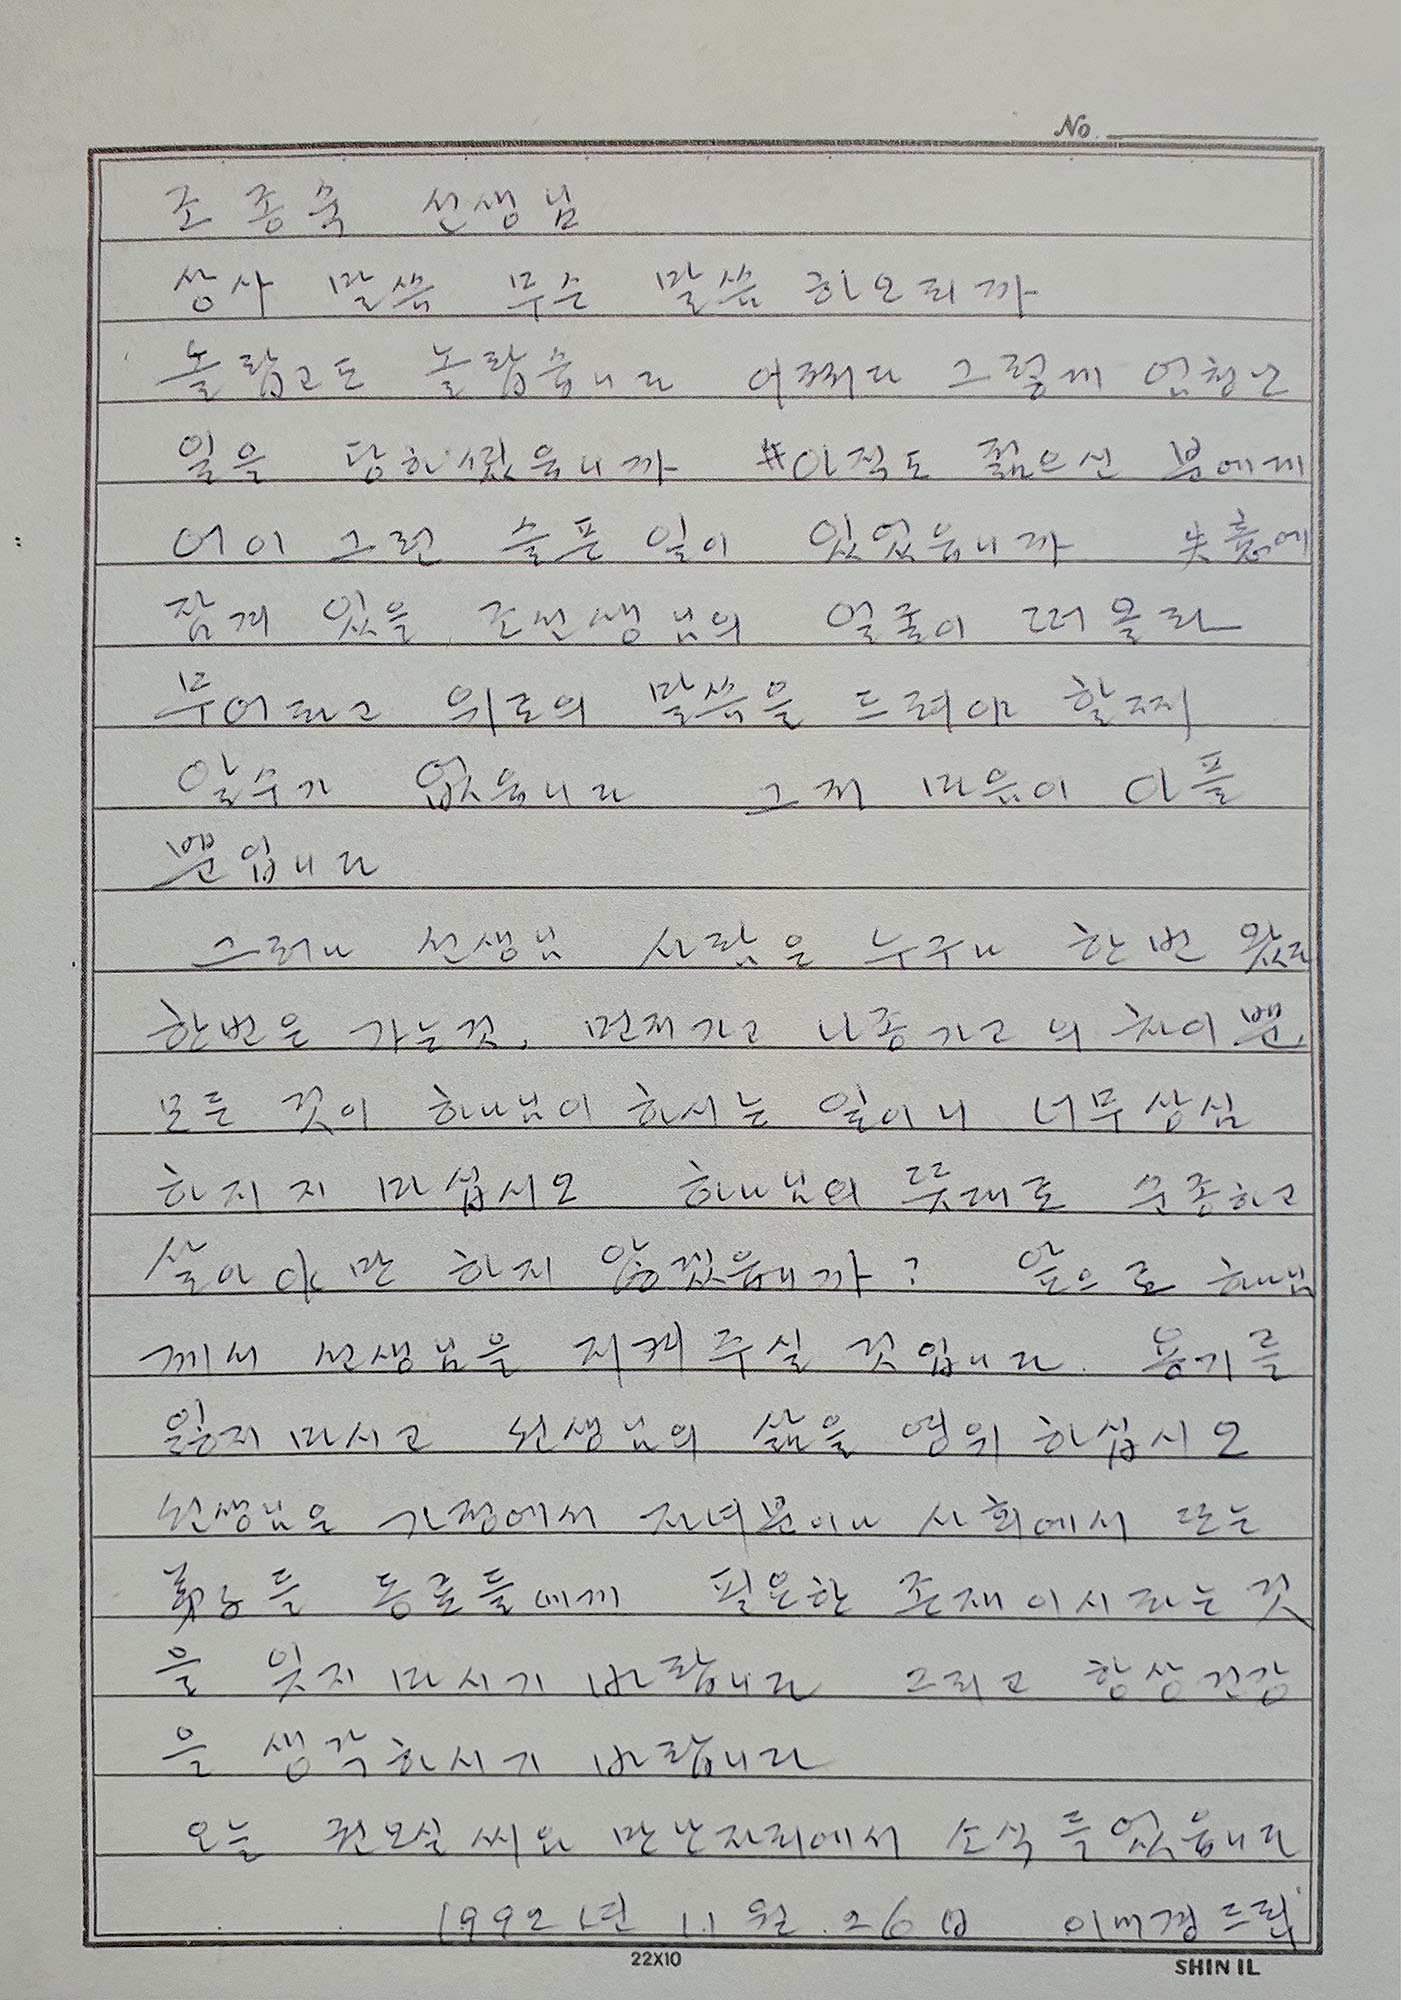 No.
조종숙 선생님
상사 말씀 무슨 말씀 하오리까
놀랍고도 놀랍습니다 어쩌다 그렇게 엄청난
일을 당하셨읍니까 아직도 젊으신 분에게
어이 그런 슬픈 일이 있었읍니까 失意에
잠겨 있을 조선생님의 얼굴이 떠올라
무어라고 위로의 말씀을 드려야 할찌
알수가 없읍니다 그저 마음이 아플
뿐입니다
그러나 선생님 사람은 누구나 한번 왔다
한번은 가는것, 먼저가고 나종가고의 차이뿐,
모든 것이 하나님이 하시는 일이니 너무상심
하지지 마십시오 하나님의 뜻대로 순종하고
살아야만 하지 않겠읍니까? 앞으로 하나님
께서 선생님을 지켜주실 것입니다. 용기를
잃지마시고 선생님의 삶을 영위하십시오
선생님은 가정에서 자녀분이나 사회에서 또는
들 동료들에게 필요한 존재이시라는것
을 잊지마시기 바랍니다 그리고 항상건강
을 생각하시기 바랍니다
오늘 권오실씨와 만난자리에서 소식 들었읍니다
1992년 11월 26日 드림
22X10
SHIN IL